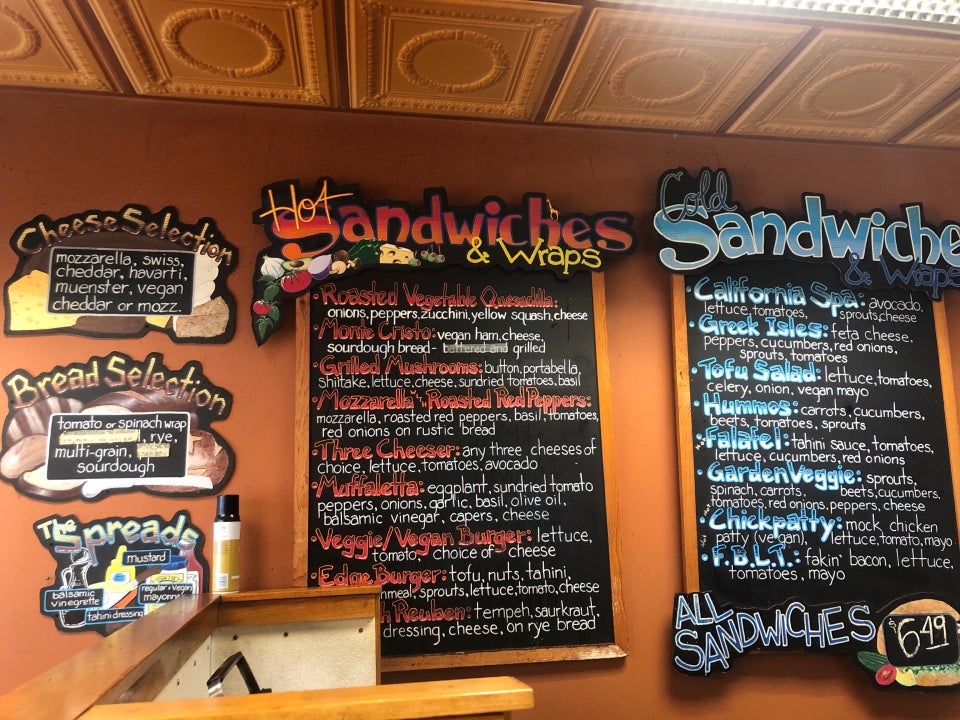 Cheese Selection
mozzarella, swiss,
cheddar, havarti,
muenster, vegan
cheddar or mozz.
Bread Selection
tomato or spinach wrap
, rye,
multi-grain,
sourdough
The Spreads
mustard
balsamic
vinegrette
regular & vegan
mayonnaise
tahini dressing
Hot Sandwiches
& Wraps
·Roasted Vegetable Quesadilla:
onions, peppers, zucchini, yellow squash, cheese
·Monte Cristo: vegan ham, cheese,
sourdough bread- battered and grilled
·Grilled Mushrooms: button, portabella,
shiitake, lettuce, cheese, sundried tomatoes, basil
·Mozzarella & Roasted Red Peppers:
mozzarella, roasted red peppers, basil, tomatoes,
red onions on rustic bread
·Three Cheeser: any three cheeses of
choice, lettuce, tomatoes, avocado
·Muffaletta: eggplant, sundried tomato
peppers, onions, garlic, basil, olive oil,
balsamic vinegar, capers, cheese
·Veggie/Vegan Burger: lettuce,
tomato, choice of cheese
·Edge Burger: tofu, nuts, tahini,
meal, sprouts, lettuce, tomato, cheese
Reuben: tempeh, saurkraut,
dressing, cheese, on rye bread
Cold Sandwiche
& Wraps
·California Spa: avocado,
lettuce, tomatoes, sprouts, cheese
·Greek Isles: feta cheese,
peppers, cucumbers, red onions,
sprouts, tomatoes
·Tofu Salad: lettuce, tomatoes,
celery, onion, vegan mayo
·Hummos: carrots, cucumbers,
beets, tomatoes, sprouts
·Falafel: tahini sauce, tomatoes,
lettuce, cucumbers, red onions
·Garden Veggie: sprouts,
spinach, carrots, beets, cucumbers,
tomatoes, red onions, peppers, cheese
·Chickpatty: mock chicken
patty (vegan), lettuce, tomato, mayo
·F.B.L.T.: fakin' bacon, lettuce,
tomatoes, mayo
ALL
SANDWICHES
$6.49